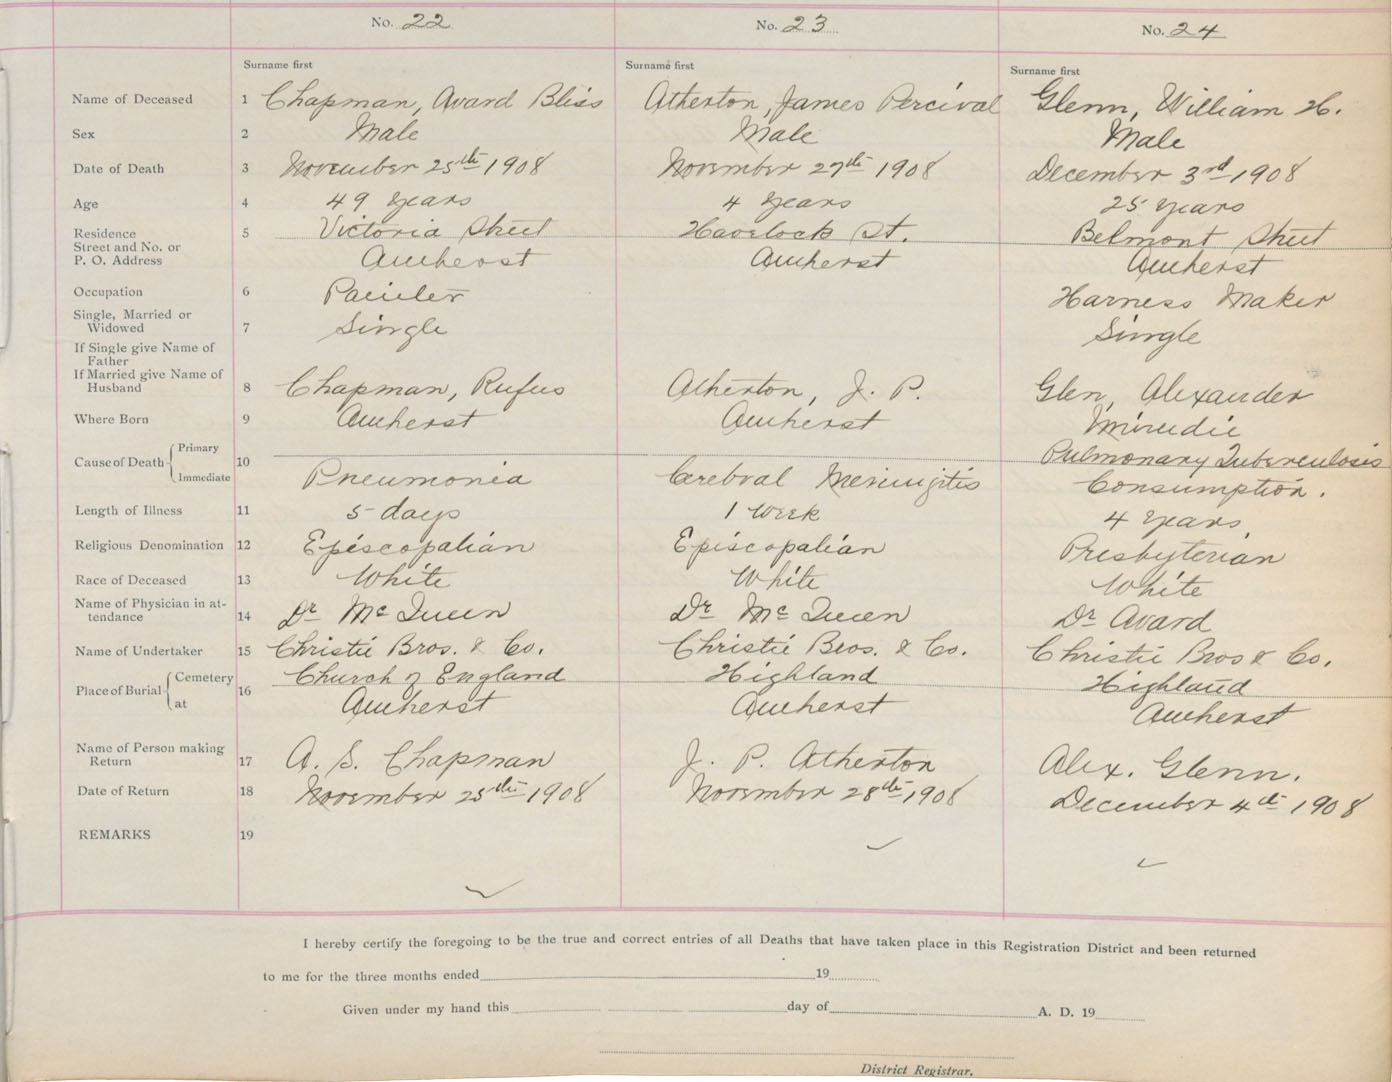 No. 22 No. 23 No. 24
Surname first Surname first Surname first
Name of Deceased 1 Chapman, Avard Bliss Atherton, James Percival Glenn, William H.
Sex 2 Male Male Male
Date of Death 3 November 25th 1908 November 27th 1908 December 3rd 1908
Age 4 49 years 4 years 25 years
Residence 5 Victoria Street Havelock St. Belmont Street
Street and No. or
P. O. Address Amherst Amherst Amherst
Occupation 6 Painter Harness Maker
Single, Married or
Widowed 7 Single Single
If Single give Name of
Father
If Married give Name of
Husband 8 Chapman, Rufus Atherton, J. P. Glen, Alexander
Where Born 9 Amherst Amherst Minudie
Cause of Death Primary 10 Pulmonary Tuberculosis
Immediate Pneumonia Cerebral Meningitis Consumption.
Length of Illness 11 5 days 1 week 4 years
Religious Denomination 12 Episcopalian Episcopalian Presbyterian
Race of Deceased 13 White White White
Name of Physician in at-
tendance 14 Dr McQueen Dr McQueen Dr Avard
Name of Undertaker 15 Christie Bros. & Co. Christie Bros. & Co. Christie Bros & Co.
Place of Burial Cemetery 16 Church of England Highland Highland
at Amherst Amherst Amherst
Name of Person making
Return 17 A. S. Chapman J. P. Atherton Alex. Glenn.
Date of Return 18 November 25th 1908 November 28th 1908 December 4th 1908
REMARKS 19
I hereby certify the foregoing to be the true and correct entries of all Deaths that have taken place in this Registration District and been returned
to me for the three months ended 19
Given under my hand this day of A. D. 19
District Registrar.